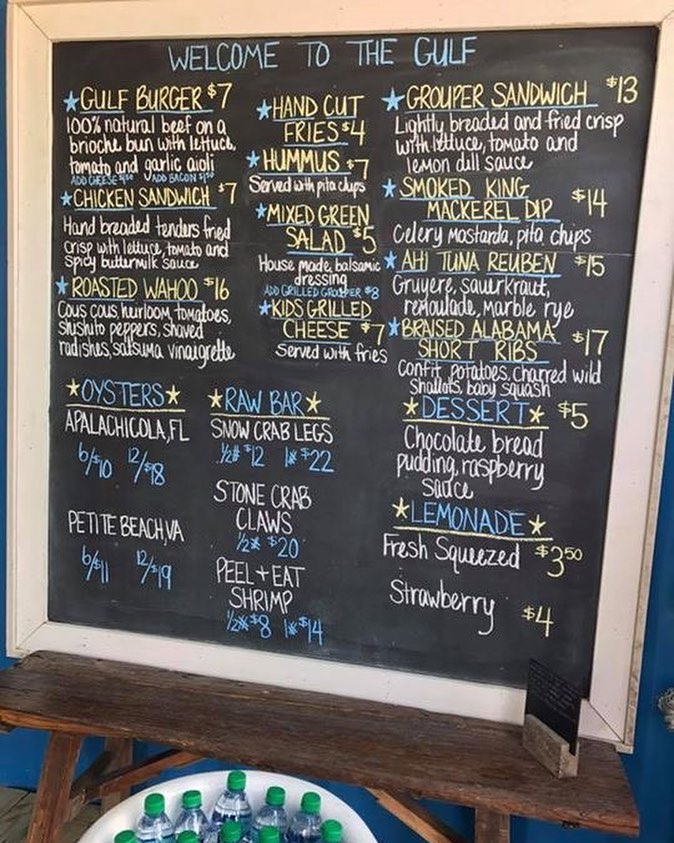 WELCOME TO THE GULF
GULF BURGER $7
100% natural beef on a
brioche bun with lettuce,
tomato and garlic aioli
ADD CHEESE ADD BACON
CHICKEN SANDWICH $7
Hand breaded tenders fried
crisp with lettuce, tomato and
spicy buttermilk sauce
ROASTED WAHOO $16
Cous cous heirloom tomatoes,
shishito peppers, shaved
radishes, satsuma vinaigrette
HAND CUT
FRIES $4
HUMMUS $7
Served with pita chips
MIXED GREEN
SALAD $5
House made, balsamic
dressing
ADD GRILLED GROUPER $8
KIDS GRILLED
CHEESE $7
Served with fries
GROUPER SANDWICH $13
Lightly breaded and fried crisp
with lettuce, tomato and
lemon dill sauce
SMOKED KING
MACKEREL DIP $14
Celery Mostarda, pita chips
AHI TUNA REUBEN $15
Gruyere, sauerkraut,
remoulade, marble rye
BRAISED ALABAMA
SHORT RIBS $17
Confit potatoes, charred wild
shallots, baby squash
OYSTERS
APALACHICOLA, FL
6/$10 12/$18
PETITE BEACH, VA
6/$11 12/$19
RAW BAR
SNOW CRAB LEGS
1/2# $12 1# $22
STONE CRAB
CLAWS
1/2# $20
PEEL + EAT
SHRIMP
1/2# $8 1# $14
DESSERT $5
Chocolate bread
pudding, raspberry
sauce
LEMONADE
Fresh Squeezed $3.50
Strawberry $4